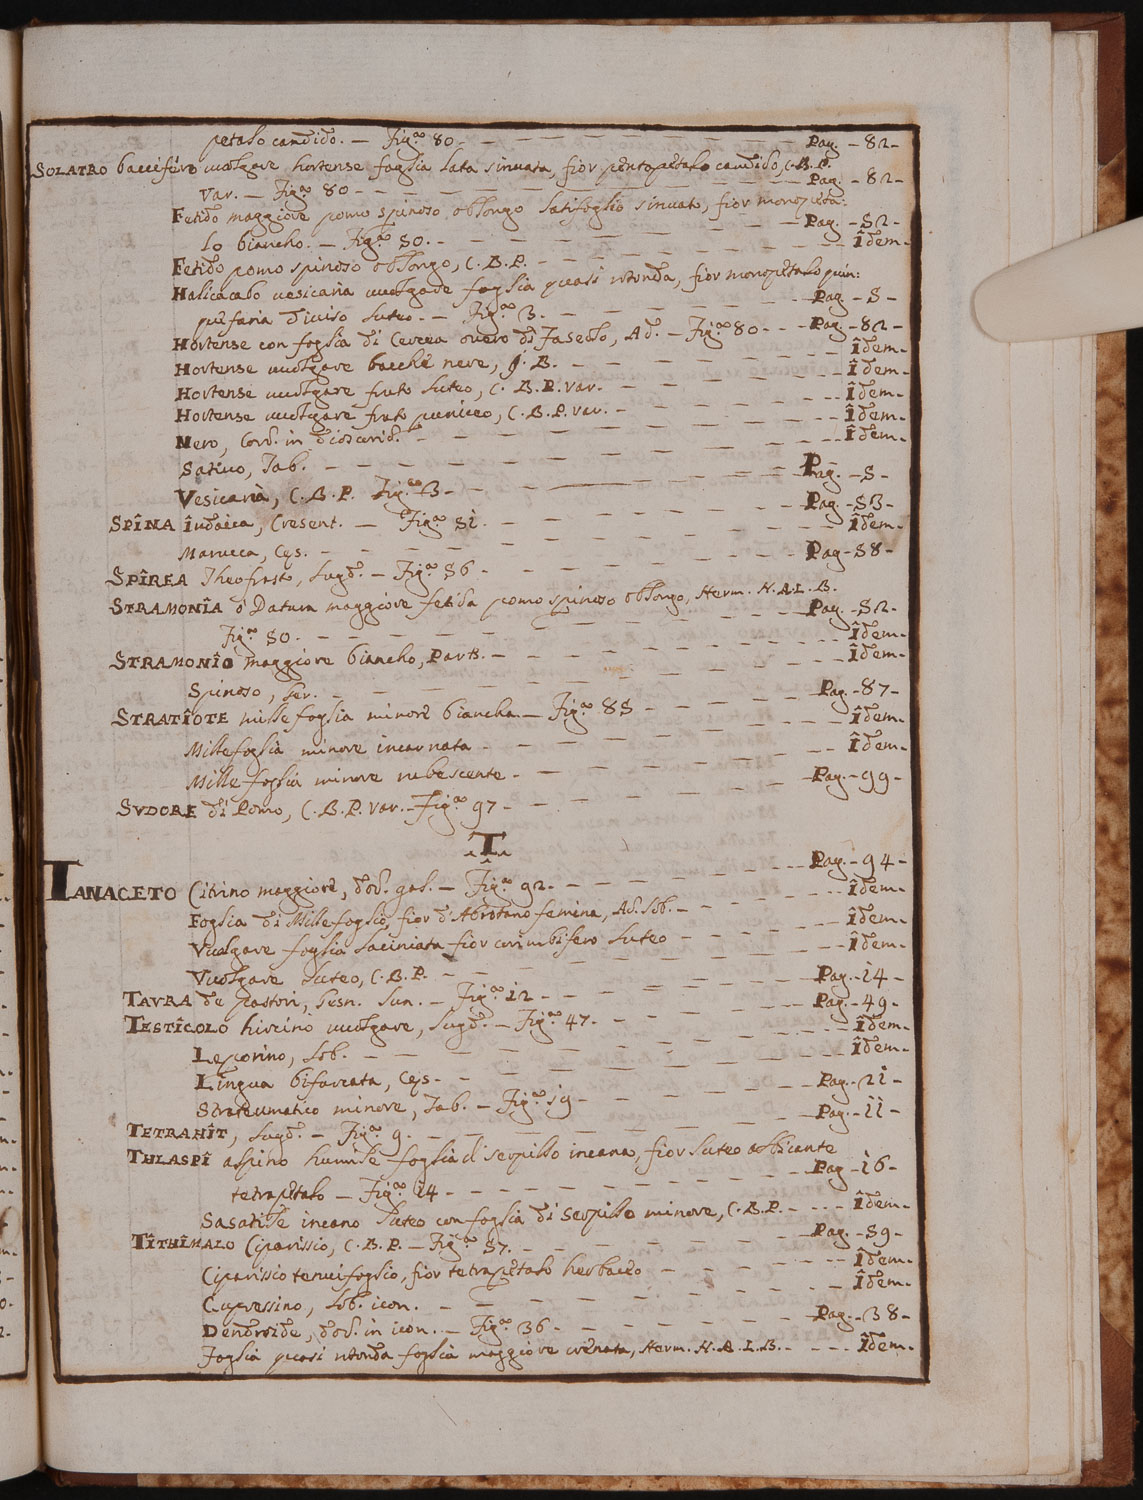 petalo candido. — Fig.ᵃ 80. — — — — — — — Pag. — 82 —
SOLATRO baccifero vuolgare hortense foglia lata sinuata, fior pentapetalo candido, C. B. P.
Var. — Fig.ᵃ 80 — — — — — — — Pag. — 82 —
Fetido maggiore pomo spinoso oblongo latifoglio sinuato, fior monopeta:
lo biancho. — Fig.ᵃ 80. — — — — — — — Pag. — 82 —
Fetido pomo spinoso oblongo, C. B. P. — — — — — — Îdem.
Halicacabo vesicaria vuolgare foglia quasi rotonda, fior monopetalo quin:
quefaria diviso luteo. — Fig.ᵃ 3. — — — — — Pag. — 8 —
Hortense con foglia di Cercea overo di Fasolo, Ad. — Fig.ᵃ 80 — — Pag. — 82 —
Hortense vuolgare bacche nere, J. B. — — — — — — Îdem.
Hortense vuolgare fruto luteo, C. B. P. var. — — — — — Îdem.
Hortense vuolgare fruto puniceo, C. B. P. var. — — — — — Îdem.
Nero, Cord. in dioscorid. — — — — — — — Îdem.
Sativo, Tab. — — — — — — — Îdem.
Vesicaria, C. B. P. Fig.ᵃ 3 — — — — — — Pag. — 8 —
SPÎNA Îndaica, Cresent. — Fig.ᵃ 81. — — — — — Pag. — 83 —
Marucca, Ces. — — — — — — — Îdem.
SPÎREA Theofrasto, Lugd. — Fig.ᵃ 86 — — — — — Pag — 88 —
STRAMONÎA ò Datura maggiore fetida pomo spinoso oblongo, Herm. H. A. L. B.
Fig.ᵃ 80. — — — — — — — Pag. — 82 —
STRAMONÎO maggiore biancho, Park. — — — — — — Îdem.
Spinoso, Ger. — — — — — — — Îdem.
STRATÎOTE mille foglia minore biancha. — Fig.ᵃ 85 — — — — Pag. — 87 —
Millefoglia minore incarnata — — — — — — — Îdem.
Mille foglia minore rubescente — — — — — — — Îdem.
SVDORE di Pomo, C. B. P. var. — Fig.ᵃ 97 — — — — — Pag. — 99 —
.T.
TANACETO Citrino maggiore, dod. gal. — Fig.ᵃ 92. — — — — — Pag. — 94 —
Foglia di Millefoglio, fior d'Abrotano femina, Ad. Lob. — — — — Îdem.
Vuolgare foglia laciniata fior corimbifero luteo — — — — — Îdem.
Vuolgare luteo, C. B. P. — — — — — — — Îdem.
TAVRA de pastori, Gesn. Lun. — Fig.ᵃ 12 — — — — — Pag. — 14 —
TESTÎCOLO hircino vuolgare, Lugd. — Fig.ᵃ 47. — — — — Pag. — 49 —
Leporino, Lob. — — — — — — — Îdem.
Lingua biforcata, Ces. — — — — — — — Îdem.
Strateumatico minore, Tab. — Fig.ᵃ 19 — — — — — Pag. — 21 —
TETRAHÎT, Lugd. — Fig.ᵃ 9. — — — — — — Pag. — 11 —
THLASPÎ alpino humile foglia di serpillo incana, fior luteo albicante
tetrapetalo — Fig.ᵃ 14 — — — — — — — Pag — 16 —
Sasatile incano luteo con foglia di Serpillo minore, C. B. P. — — — Îdem.
TÎTHÎMALO Ciparissio, C. B. P. — Fig.ᵃ 87. — — — — — Pag. — 89 —
Ciparissio tenuifoglio, fior tetrapetalo herbaceo — — — — — Îdem.
Cupressino, Lob. icon. — — — — — — — Îdem.
Dendroide, dod. in icon. — Fig.ᵃ 36 — — — — — Pag. — 38 —
Foglia quasi rotonda foglia maggiore crenata, Herm. H. A. L. B. — — — Îdem.